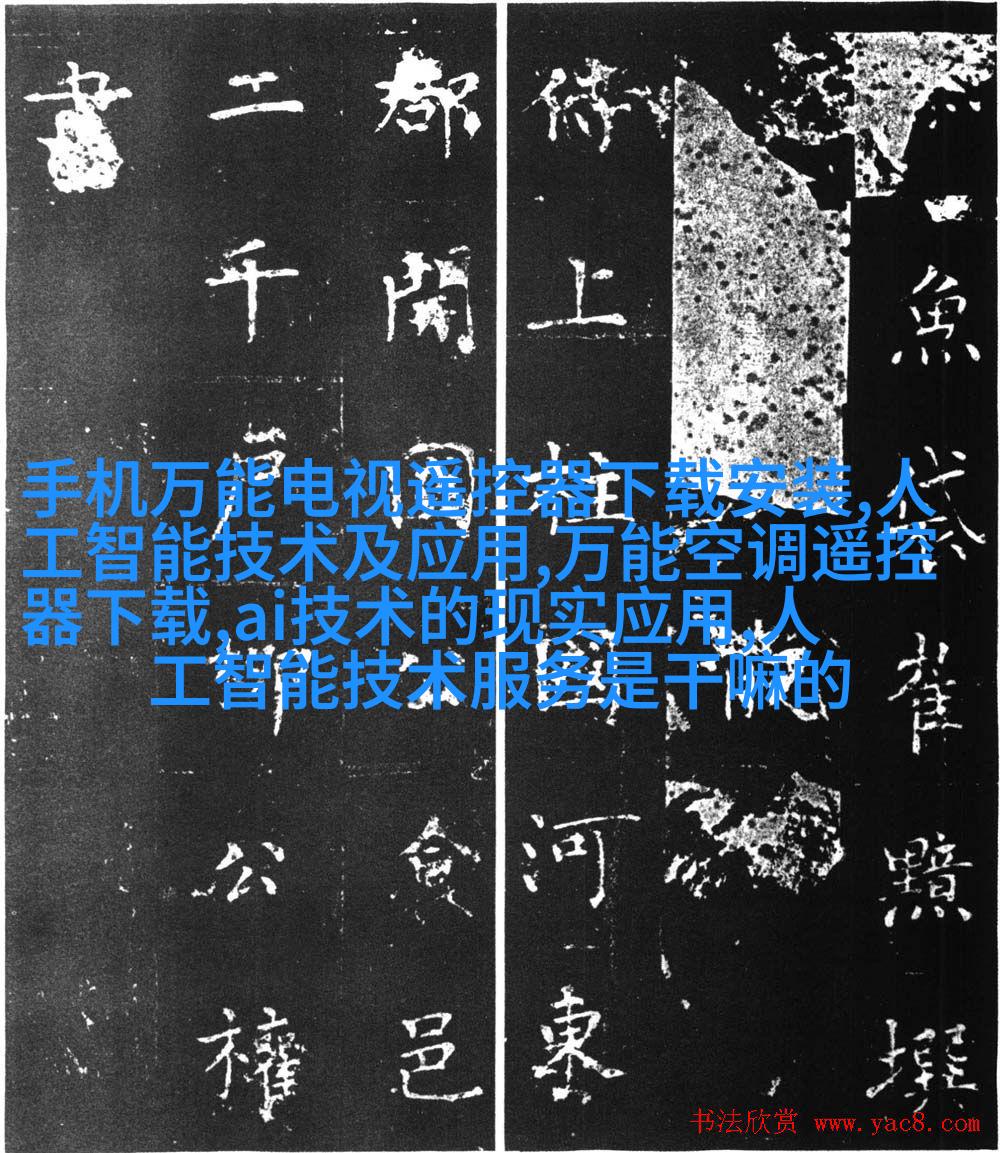 魚袋崔黯撰
侍上柱國河東
郡開國公食邑
二千户柳公權
書
手机万能电视遥控器下载安装,人
工智能技术及应用,万能空调遥控
器下载,ai技术的现实应用,人
工智能技术服务是干嘛的
书法欣赏 www.yac8.com